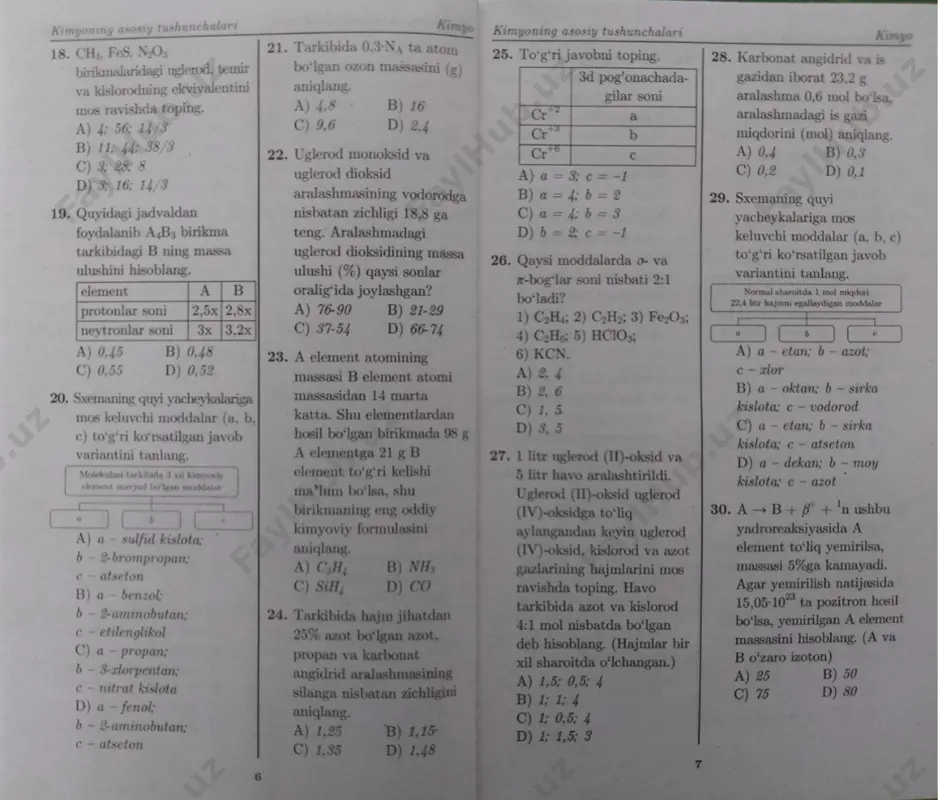 Kimyoning asosiy tushunchalari
Kimyo
18. CH₄, FeS, N₂O₃
birikmalaridagi uglerod, temir
va kislorodning ekvivalentini
mos ravishda toping.
A) 4; 56; 14/3
B) 11; 44; 38/3
C) 3; 28; 8
D) 3; 16; 14/3
19. Quyidagi jadvaldan
foydalanib A₄B₃ birikma
tarkibidagi B ning massa
ulushini hisoblang.
element A B
protonlar soni 2,5x 2,8x
neytronlar soni 3x 3,2x
A) 0,45 B) 0,48
C) 0,55 D) 0,52
20. Sxemaning quyi yacheykalariga
mos keluvchi moddalar (a, b,
c) to'g'ri ko'rsatilgan javob
variantini tanlang.
Molekulasi tarkibida 3 xil kimyoviy
element mavjud bo'lgan moddalar
a b c
A) a – sulfid kislota;
b – 2-brompropan;
c – atseton
B) a – benzol;
b – 2-aminobutan;
c – etilenglikol
C) a – propan;
b – 3-xlorpentan;
c – nitrat kislota
D) a – fenol;
b – 2-aminobutan;
c – atseton
21. Tarkibida 0.3·Nᴀ ta atom
bo'lgan ozon massasini (g)
aniqlang.
A) 4,8 B) 16
C) 9,6 D) 2,4
22. Uglerod monoksid va
uglerod dioksid
aralashmasining vodorodga
nisbatan zichligi 18,8 ga
teng. Aralashmadagi
uglerod dioksidining massa
ulushi (%) qaysi sonlar
oralig'ida joylashgan?
A) 76-90 B) 21-29
C) 37-54 D) 66-74
23. A element atomining
massasi B element atomi
massasidan 14 marta
katta. Shu elementlardan
hosil bo'lgan birikmada 98 g
A elementga 21 g B
element to'g'ri kelishi
ma'lum bo'lsa, shu
birikmaning eng oddiy
kimyoviy formulasini
aniqlang.
A) C₂H₄ B) NH₃
C) SiH₄ D) CO
24. Tarkibida hajm jihatdan
25% azot bo'lgan azot,
propan va karbonat
angidrid aralashmasining
silanga nisbatan zichligini
aniqlang.
A) 1,25 B) 1,15
C) 1,35 D) 1,48
6
Kimyoning asosiy tushunchalari
Kimyo
25. To'g'ri javobni toping.
3d pog'onachada-
gilar soni
Cr⁺² a
Cr⁺³ b
Cr⁺⁶ c
A) a = 3; c = −1
B) a = 4; b = 2
C) a = 4; b = 3
D) b = 2; c = −1
26. Qaysi moddalarda σ- va
π-bog'lar soni nisbati 2:1
bo'ladi?
1) C₂H₄; 2) C₂H₂; 3) Fe₂O₃;
4) C₂H₆; 5) HClO₃;
6) KCN.
A) 2, 4
B) 2, 6
C) 1, 5
D) 3, 5
27. 1 litr uglerod (II)-oksid va
5 litr havo aralashtirildi.
Uglerod (II)-oksid uglerod
(IV)-oksidga to'liq
aylangandan keyin uglerod
(IV)-oksid, kislorod va azot
gazlarining hajmlarini mos
ravishda toping. Havo
tarkibida azot va kislorod
4:1 mol nisbatda bo'lgan
deb hisoblang. (Hajmlar bir
xil sharoitda o'lchangan.)
A) 1,5; 0,5; 4
B) 1; 1; 4
C) 1; 0,5; 4
D) 1; 1,5; 3
28. Karbonat angidrid va is
gazidan iborat 23.2 g
aralashma 0,6 mol bo'lsa,
aralashmadagi is gazi
miqdorini (mol) aniqlang.
A) 0,4 B) 0,3
C) 0,2 D) 0,1
29. Sxemaning quyi
yacheykalariga mos
keluvchi moddalar (a, b, c)
to'g'ri ko'rsatilgan javob
variantini tanlang.
Normal sharoitda 1 mol miqdori
22,4 litr hajmni egallaydigan moddalar
a b c
A) a – etan; b – azot;
c – xlor
B) a – oktan; b – sirka
kislota; c – vodorod
C) a – etan; b – sirka
kislota; c – atseton
D) a – dekan; b – moy
kislota; c – azot
30. A → B + β⁺ + ¹n ushbu
yadroreaksiyasida A
element to'liq yemirilsa,
massasi 5%ga kamayadi.
Agar yemirilish natijasida
15,05·10²³ ta pozitron hosil
bo'lsa, yemirilgan A element
massasini hisoblang. (A va
B o'zaro izoton)
A) 25 B) 50
C) 75 D) 80
7
FaylHub.uz